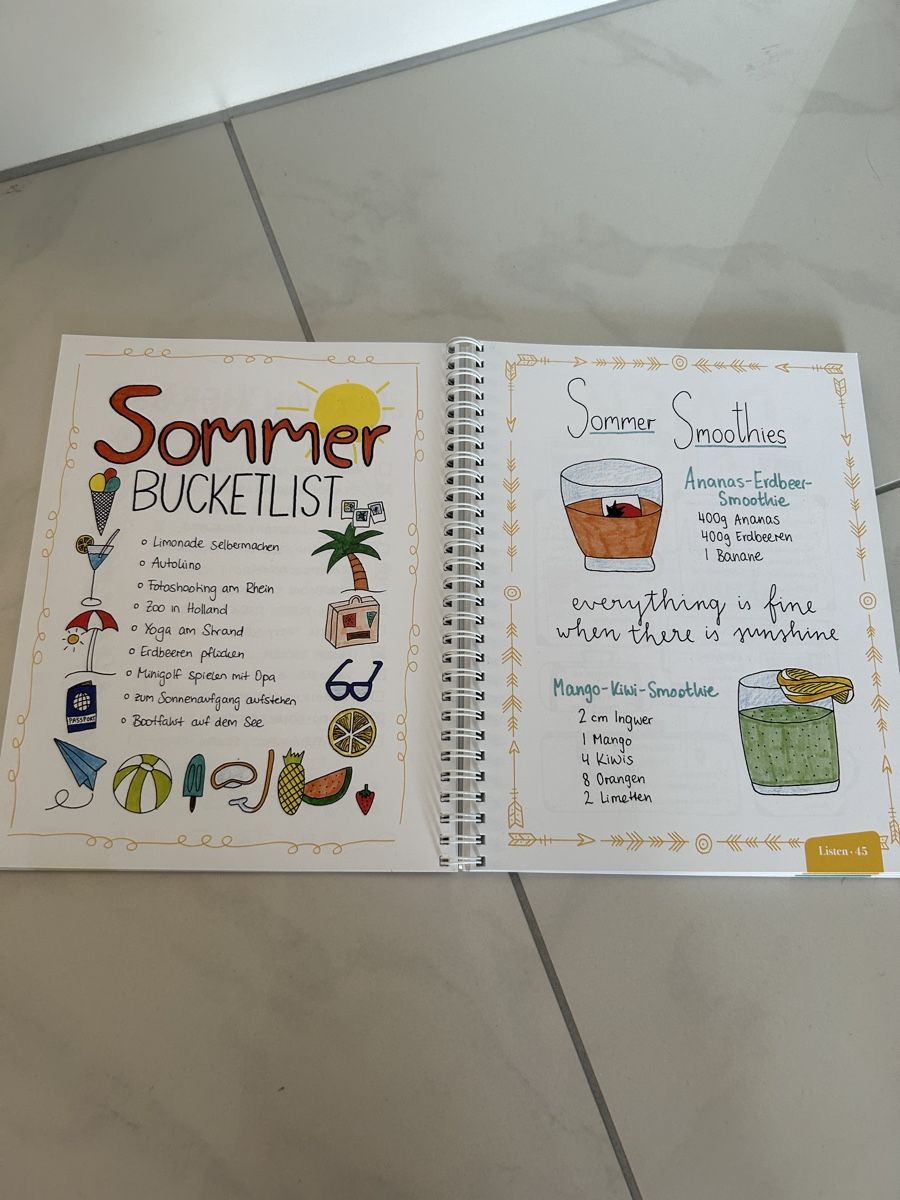 Sommer
BUCKETLIST
Limonade selbermachen
Autokino
Fotoshooting am Rhein
Zoo in Holland
Yoga am Strand
Erdbeeren pflücken
Minigolf spielen mit Opa
zum Sonnenaufgang aufstehen
Bootfahrt auf dem See
PASSPORT
Sommer Smoothies
Ananas-Erdbeer-
Smoothie
400g Ananas
400g Erdbeeren
1 Banane
everything is fine
when there is sunshine
Mango-Kiwi-Smoothie
2 cm Ingwer
1 Mango
4 Kiwis
8 Orangen
2 Limetten
Listen · 45